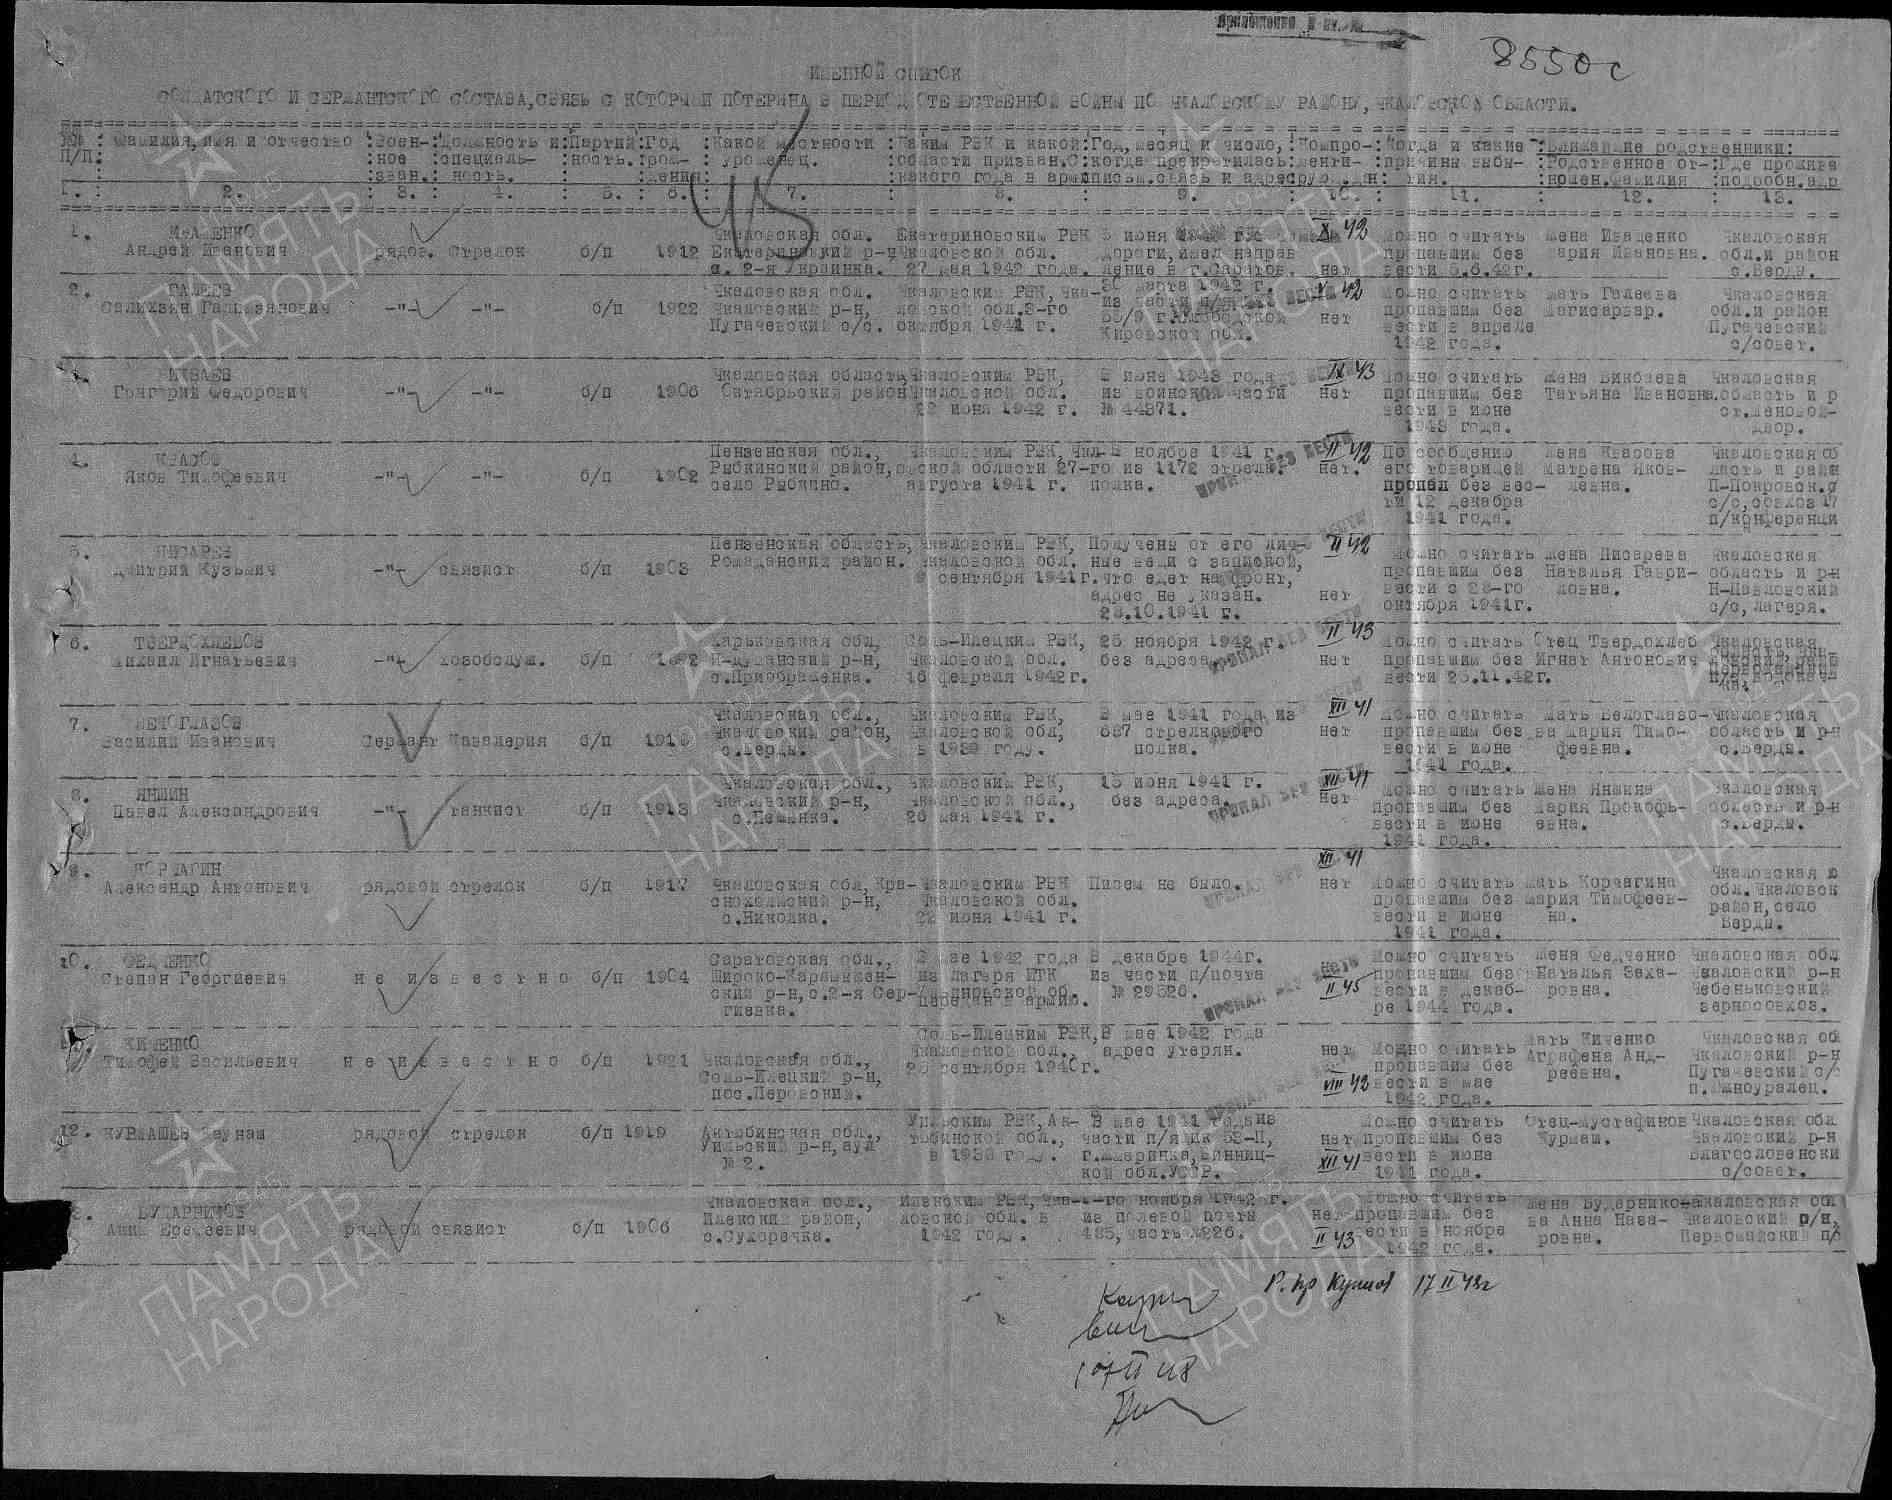 Приложение к вх. №
8550с
ИМЕННОЙ СПИСОК
СОЛДАТСКОГО И СЕРЖАНТСКОГО СОСТАВА, СВЯЗЬ С КОТОРЫМИ ПОТЕРЯНА В ПЕРИОД ОТЕЧЕСТВЕННОЙ ВОЙНЫ ПО ЧКАЛОВСКОМУ РАЙОНУ, ЧКАЛОВСКОЙ ОБЛАСТИ.
№№ : Фамилия, имя и отчество : Воен- : Должность и : Партий : Год : Какой местности : Каким РВК и какой : Год, месяц и число, : Компро- : Когда и какие : Ближайшие родственники:
П/П : ное : специаль- : ность. : рож- : уроженец. : области призван. С : когда прекратилась : менти- : причина выбы- : Родственное от- : Где прожива
зван. : ность. : дения : какого года в арм : письм. связь и адрес : тия. : ношен. фамилия : подробн. адр
1. : 2. : 3. : 4. : 5. : 6. : 7. : 8. : 9. : 10. : 11. : 12. : 13.
45
1. Чкаловская обл. Екатериновским РВК 5 июня X 43 Можно считать жена Иващенко Чкаловская
Андрей Иванович рядов. Стрелок б/п 1912 Екатериновский р-н Чкаловской обл. дороги, имел направ пропавшим без Мария Ивановна. обл. и район
с. 2-я Украинка. 27 мая 1942 года. ление в г. Саратов. нет вести 5.6.42г. с. Берды.
2. ГАЛЕЕВ Чкаловская обл. Чкаловским РВК, Чка- 30 марта 1942 г. 42 Можно считать мать Галеева Чкаловская
-"- -"- б/п 1922 Чкаловский р-н, ловской обл. 3-го из части нет пропавшим без Магисарвар. обл. и район
Пугачевский с/с. октября 1941 г. вести в апреле Пугачевский
Кировской обл. 1942 года. с/совет.
БИКБАЕВ Чкаловская область, Чкаловским РВК, В июне 1943 года IX 43 Можно считать жена Бикбаева Чкаловская
Григорий Федорович -"- -"- б/п 1906 Октябрьский район Чкаловской обл. из воинской части нет пропавшим без Татьяна Ивановна. область и р
22 июня 1942 г. № 44371. вести в июне ст. Меновой-
1943 года. двор.
4. КВАСОВ Пензенская обл., Чкаловским РВК, Чкал В ноябре 1941 г. II 42 По сообщению жена Квасова Чкаловская об
Яков Тимофеевич -"- -"- б/п 1902 Рыбкинский район, овской области 27-го из 1172 стрелк. нет. его товарищей Матрена Яков- ласть и район
село Рыбкино. августа 1941 г. полка. пропал без вес- левна. П-Покровск.
ти 12 декабря с/с, совхоз 17
1941 года. п/конференци
5. ПИСАРЕВ Пензенская область, Чкаловским РВК, Получены от его лич- II 42 Можно считать жена Писарева Чкаловская
Дмитрий Кузьмич -"- связист б/п 1903 Ромадановский район. Чкаловской обл. ные вещи с запиской, пропавшим без Наталья Гаври- область и р-н
9 сентября 1941г. что едет на фронт, вести с 28-го ловна. Н-Павловский
адрес не указан. нет октября 1941г. с/с, лагеря.
28.10.1941 г.
6. ТВЕРДОХЛЕБОВ Харьковская обл, Соль-Илецким РВК, 25 ноября 1942 г. II 43 Можно считать Отец Твердохлеб Чкаловская
Михаил Игнатьевич -"- хозобслуж. б/п Чкаловской обл. без адреса. нет пропавшим без Игнат Антонович
с. Приображенка. 16 февраля 1942г. вести 25.11.42г.
7. БЕЛОГЛАЗОВ Чкаловская обл., Чкаловским РВК, В мае 1941 года из XII 41 Можно считать мать Белоглазо- Чкаловская
Василий Иванович Сержант Кавалерия б/п Чкаловский район, Чкаловской обл, 687 стрелкового нет пропавшим без ва Мария Тимо- область и р-н
с. Берды. в 1939 году. полка. вести в июне феевна. с. Берды.
1941 года.
8. ЯНШИН Чкаловская обл., Чкаловским РВК, 15 июня 1941 г. XII 41 Можно считать жена Яншина Чкаловская
Павел Александрович -"- танкист б/п 1913 Чкаловский р-н, Чкаловской обл., без адреса. нет пропавшим без Мария Прокофь- область и р-н
26 мая 1941 г. вести в июне евна. с. Берды.
1941 года.
9. КОРЧАГИН XII 41
Александр Антонович рядовой стрелок б/п 1917 Чкаловская обл, Кра- Чкаловским РВК Писем не было. нет Можно считать мать Корчагина Чкаловская
снохолмский р-н, Чкаловской обл. пропавшим без Мария Тимофеев- обл. Чкаловск
с. Николка. 22 июня 1941 г. вести в июне на. район, село
1941 года. Берды.
10. ФЕДЧЕНКО Саратовская обл., В мае 1942 года В декабре 1944г. нет Можно считать жена Федченко Чкаловская обл
Степан Георгиевич н е и з в е с т н о б/п 1904 Широко-Карамышен- из лагеря ИТК из части п/почта II 45 пропавшим без Наталья Заха- Чкаловский р-н
ский р-н, с. 2-я Сер- передан в армию. № 29526. вести в декаб- ровна. Чебеньковский
гиевка. ре 1944 года. зерносовхоз.
КИЧЕНКО Соль-Илецким РВК, В мае 1942 года мать Киченко Чкаловская об
Тимофей Васильевич н е и з в е с т н о б/п 1921 Чкаловская обл., Чкаловской обл., адрес утерян. нет Можно считать Аграфена Анд- Чкаловский р-н
Соль-Илецкий р-н, 25 сентября 1940г. пропавшим без реевна. Пугачевский с/с
пос. Перовский. VIII 42 вести в мае п. Южноуралец.
1942 года.
12. КУРМАШЕВ рядовой стрелок б/п 1919 Актюбинская обл., Уильским РВК, Ак- В мае 1941 года из Можно считать Отец-Мустафинов Чкаловская обл
Уильский р-н, аул тюбинской обл., части п/ящик 53-П, нет пропавшим без Курмаш. Чкаловский р-н
№ 2. в 1939 году. г. Жмеринка, Винниц- XII 41 вести в июня Благословенски
кой обл. УССР. 1941 года. с/совет.
Чкаловская обл., Илекским РВК, Чка- 1-го ноября 1942 г. Можно считать жена Бударнико- Чкаловская обл
рядовой связист б/п 1906 Илекский район, ловской обл. в из полевой почты нет пропавшим без ва Анна Наза- Чкаловский р/н,
с. Сухоречка. 1942 году. 485, часть №226. II 43 вести в ноябре ровна. Первомайский п/с
1942 года.
17 II 48г
17 II 48
ПАМЯТЬ
НАРОДА